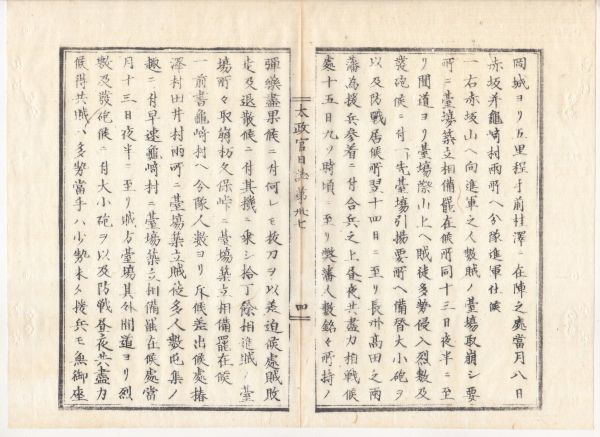 同城ヨリ五里程手前桂澤ニ在陣之處當月八日
赤坂并龜崎村両所ヘ分隊進軍仕候
一右赤坂山ヘ向進軍之人数賊ノ臺場取崩シ要
所ニ臺場築立相備罷在候所同十三日夜半ニ至
リ間道ヨリ臺場際山上ヘ賊徒多勢侵入烈敷及
發砲候ニ付一ト先臺場引揚要所ヘ備替大小砲ヲ
以及防戰居候所翌十四日ニ至リ長州高田之両
藩為援兵参着ニ付合兵之上昼夜共盡力相戰候
處十五日九ツ時頃ニ至リ弊藩人数銘々所持ノ
太政官日誌第卅七
四
彈藥盡果候ニ付何レモ抜刀ヲ以差迫候處賊敗
走及退散候ニ付其機ニ乗シ拾丁餘相進賊ノ臺
場所々取崩枋久保峠ニ臺場築立相備罷在候
一前書龜崎村ヘ分隊人数ヨリ斥候差出候處椿
澤村田井村両所ニ臺場築立賊徒多人数屯集ノ
趣ニ付早速龜崎村ニ臺場築立相備罷在候處當
月十三日夜半ニ至リ賊方臺場其外間道ヨリ烈
敷及發砲候ニ付大小砲ヲ以及防戰昼夜共盡力
候得共賊ハ多勢當手ハ少勢未タ援兵モ無御座